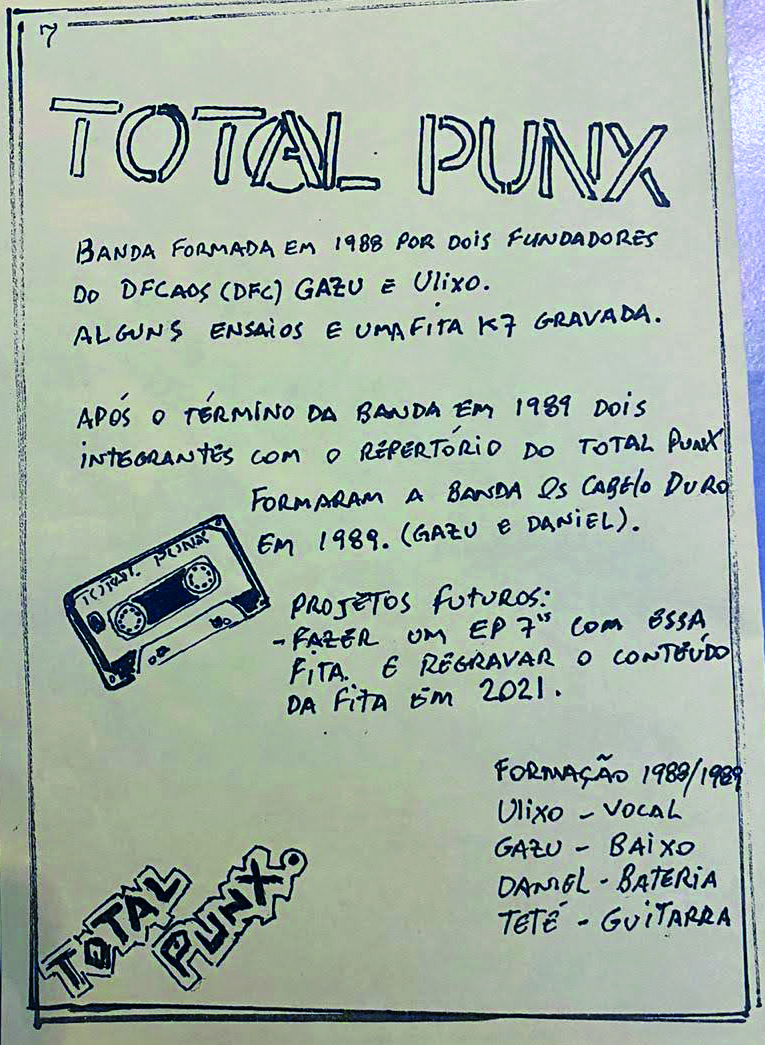 7
TOTAL PUNX
BANDA FORMADA EM 1988 POR DOIS FUNDADORES
DO DFCAOS (DFC) GAZU E ULIXO.
ALGUNS ENSAIOS E UMA FITA K7 GRAVADA.
APÓS O TÉRMINO DA BANDA EM 1989 DOIS
INTEGRANTES COM O REPERTÓRIO DO TOTAL PUNX
FORMARAM A BANDA OS CABELO DURO
EM 1989. (GAZU E DANIEL).
TOTAL PUNX
PROJETOS FUTUROS:
- FAZER UM EP 7" COM ESSA
FITA. E REGRAVAR O CONTEÚDO
DA FITA EM 2021.
FORMAÇÃO 1988/1989
ULIXO - VOCAL
GAZU - BAIXO
DANIEL - BATERIA
TETÉ - GUITARRA
TOTAL
PUNX.